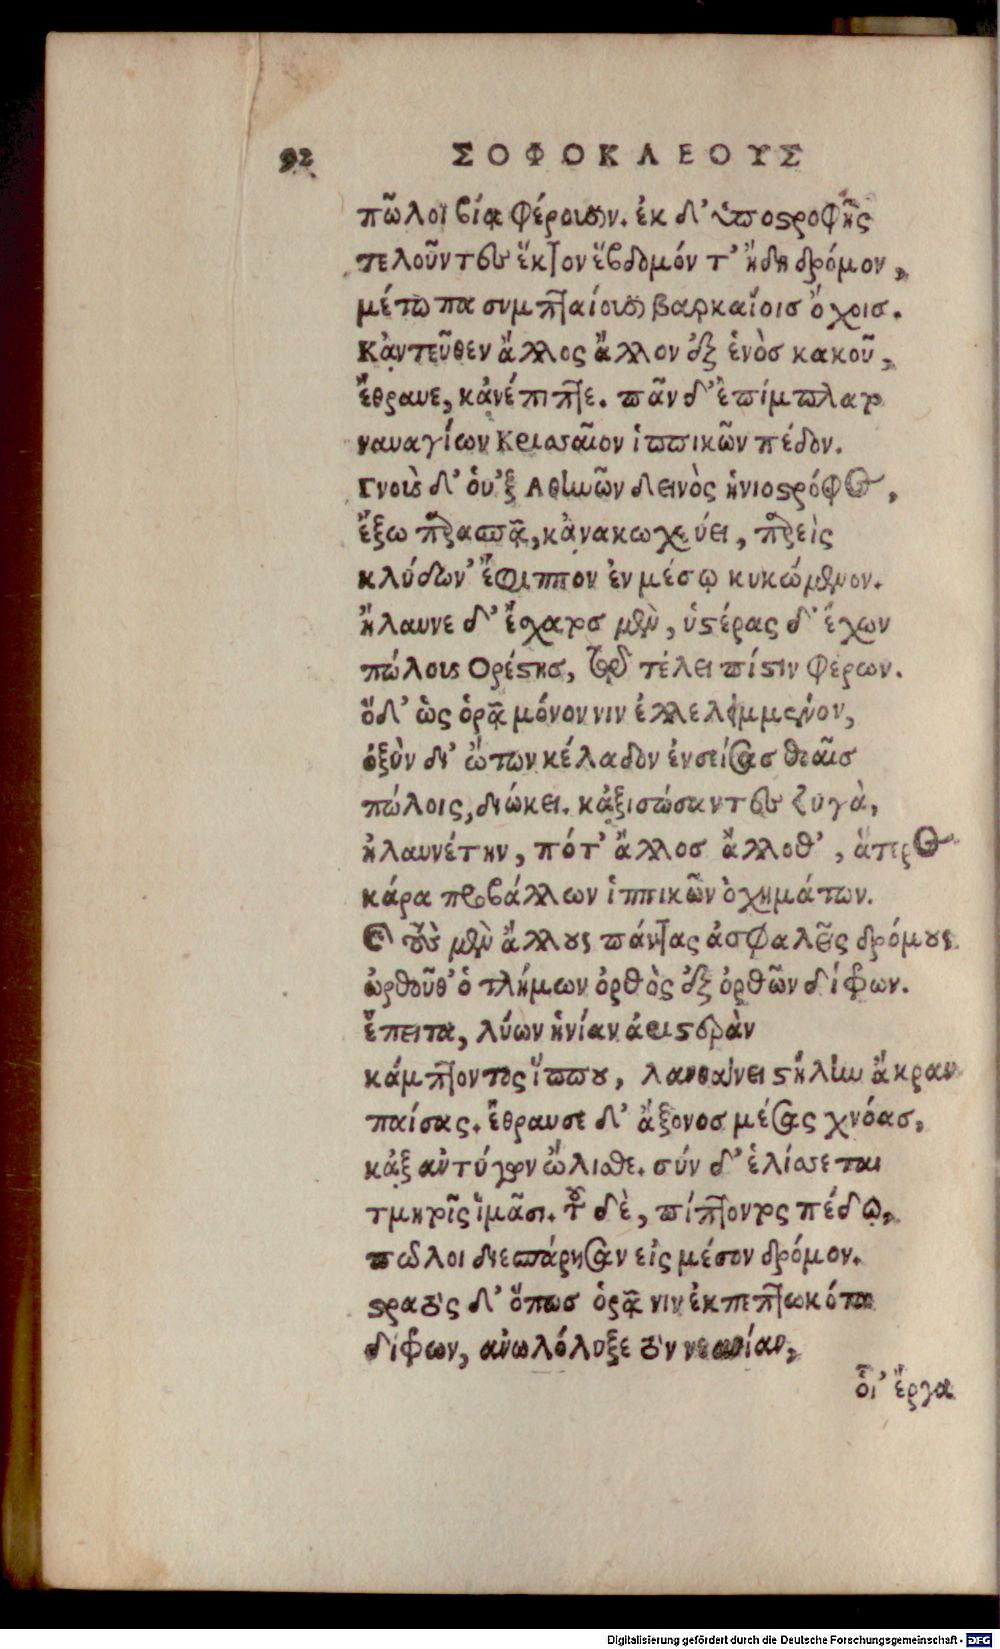 92 ΣΟΦΟΚΛΕΟΥΣ
πῶλοι βίᾳ φέρουσιν. ἐκ δ' ὑποστροφῆς
τελοῦντες ἕκτον ἕβδομόν τ' ἤδη δρόμον,
μέτωπα συμπταίουσι βαρκαίοισ ὄχοισ.
Κἀντεῦθεν ἄλλος ἄλλον ἐξ ἑνὸσ κακοῦ,
ἔθραυε, κἀνέπιπτε. πᾶν δ' ἐπίμπλατο
ναυαγίων Κρισαῖον ἱππικῶν πέδον.
Γνοὺς δ' οὑ'ξ Ἀθηνῶν δεινὸς ἡνιοστρόφος,
ἔξω παρασπᾷ, κἀνακωχεύει, παρεὶς
κλύδων' ἔφιππον ἐν μέσῳ κυκώμενον.
ἤλαυνε δ' ἔσχατοσ μὲν, ὑστέρας δ' ἔχων
πώλους Ορέστησ, τῷ τέλει πίστιν φέρων.
ὅδ' ὡς ὁρᾷ μόνον νιν ἐλλελειμμένον,
ὀξὺν δι' ὤτων κέλαδον ἐνσείσασ θοαῖσ
πώλοις, διώκει. κἀξισώσαντες ζυγὰ,
ἠλαυνέτην, πότ' ἄλλοσ ἄλλοθ', ἅτερος
κάρα προβάλλων ἱππικῶν ὀχημάτων.
Καὶ τοὺς μὲν ἄλλους πάντας ἀσφαλεῖς δρόμους
ὠρθοῦθ' ὁ τλήμων ὀρθὸς ἐξ ὀρθῶν δίφρων.
ἔπειτα, λύων ἡνίαν ἀριστερὰν
κάμπτοντος ἵππου, λανθάνει στήλην ἄκραν
παίσας. ἔθραυσε δ' ἄξονοσ μέσας χνόασ,
κἀξ ἀντύγων ὤλισθε. σύν δ' ἑλίσσεται
τμητοῖς ἱμᾶσι. τοῦ δὲ, πίπτοντος πέδῳ,
πῶλοι διεσπάρησαν εἰς μέσον δρόμον.
στρατὸς δ' ὅπωσ ὁρᾷ νιν ἐκπεπτωκότα
δίφρων, ἀνωλόλυξε τὸν νεανίαν,
οἷ' ἔργα
Digitalisierung gefördert durch die Deutsche Forschungsgemeinschaft - DFG